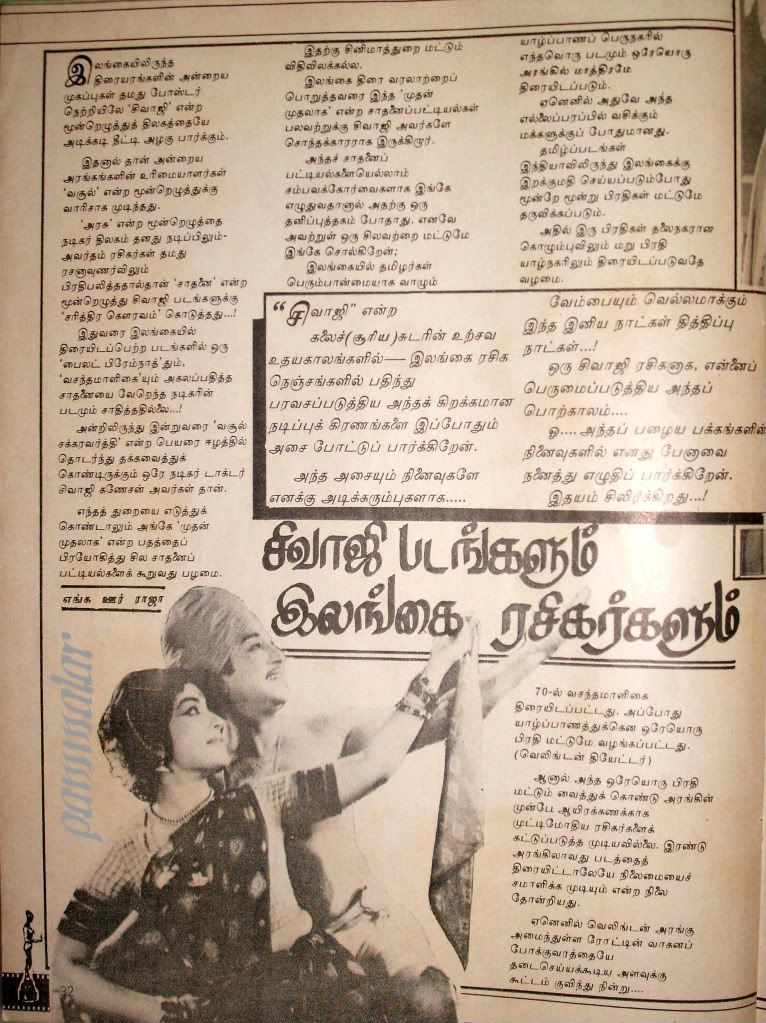 இலங்கையிலிருந்த
திரையரங்களின் அன்றைய
முகப்புகள் தமது போஸ்டர்
நெற்றியிலே 'சிவாஜி' என்ற
மூன்றெழுத்துத் திலகத்தையே
அடிக்கடி தீட்டி அழகு பார்க்கும்.
இதனால் தான் அன்றைய
அரங்கங்களின் உரிமையாளர்கள்
'வசூல்' என்ற மூன்றெழுத்துக்கு
வாரிசாக முடிந்தது.
'அரசு' என்ற மூன்றெழுத்தை
நடிகர் திலகம் தனது நடிப்பிலும்-
அவர்தம் ரசிகர்கள் தமது
ரசனாவுணர்விலும்
பிரதிபலித்ததால்தான் 'சாதனை' என்ற
மூன்றெழுத்து சிவாஜி படங்களுக்கு
'சரித்திர கௌரவம்' கொடுத்தது...!
இதுவரை இலங்கையில்
திரையிடப்பெற்ற படங்களில் ஒரு
'பைலட் பிரேம்நாத்'தும்,
'வசந்தமாளிகை'யும் அகலப்பதித்த
சாதனையை வேறெந்த நடிகரின்
படமும் சாதித்ததில்லை...!
அன்றிலிருந்து இன்றுவரை 'வசூல்
சக்கரவர்த்தி' என்ற பெயரை ஈழத்தில்
தொடர்ந்து தக்கவைத்துக்
கொண்டிருக்கும் ஒரே நடிகர் டாக்டர்
சிவாஜி கணேசன் அவர்கள் தான்.
எந்தத் துறையை எடுத்துக்
கொண்டாலும் அங்கே 'முதன்
முதலாக' என்ற பதத்தைப்
பிரயோகித்து சில சாதனைப்
பட்டியல்களைக் கூறுவது பழமை.
எங்க ஊர் ராஜா
இதற்கு சினிமாத்துறை மட்டும்
விதிவிலக்கல்ல.
இலங்கை திரை வரலாற்றைப்
பொறுத்தவரை இந்த 'முதன்
முதலாக' என்ற சாதனைப்பட்டியல்கள்
பலவற்றுக்கு சிவாஜி அவர்களே
சொந்தக்காரராக இருக்கிறார்.
அந்தச் சாதனைப்
பட்டியல்களையெல்லாம்
சம்பவக்கோர்வைகளாக இங்கே
எழுதுவதானால் அதற்கு ஒரு
தனிப்புத்தகம் போதாது. எனவே
அவற்றுள் ஒரு சிலவற்றை மட்டுமே
இங்கே சொல்கிறேன்;
இலங்கையில் தமிழர்கள்
பெரும்பான்மையாக வாழும்
யாழ்ப்பாணப் பெருநகரில்
எந்தவொரு படமும் ஒரேயொரு
அரங்கில் மாத்திரமே
திரையிடப்படும்.
ஏனெனில் அதுவே அந்த
எல்லைப்பரப்பில் வசிக்கும்
மக்களுக்குப் போதுமானது.
தமிழ்ப்படங்கள்
இந்தியாவிலிருந்து இலங்கைக்கு
இறக்குமதி செய்யப்படும்போது
மூன்றே மூன்று பிரதிகள் மட்டுமே
தருவிக்கப்படும்.
அதில் இரு பிரதிகள் தலைநகரான
கொழும்பிலும் மறு பிரதி
யாழ்நகரிலும் திரையிடப்படுவதே
வழமை.
"சிவாஜி" என்ற
கலைச்(சூரிய)சுடரின் உற்சவ
உதயகாலங்களில்— இலங்கை ரசிக
நெஞ்சங்களில் பதிந்து
பரவசப்படுத்திய அந்தக் கிறக்கமான
நடிப்புக் கிரணங்களை இப்போதும்
அசை போட்டுப் பார்க்கிறேன்.
அந்த அசையும் நினைவுகளே
எனக்கு அடிக்கரும்புகளாக.....
வேம்பையும் வெல்லமாக்கும்
இந்த இனிய நாட்கள் தித்திப்பு
நாட்கள்...!
ஒரு சிவாஜி ரசிகனாக, என்னைப்
பெருமைப்படுத்திய அந்தப்
பொற்காலம்....
ஓ.... அந்தப் பழைய பக்கங்களின்
நினைவுகளில் எனது பேனாவை
நனைத்து எழுதிப் பார்க்கிறேன்.
இதயம் சிலிர்க்கிறது...!
சிவாஜி படங்களும்
இலங்கை ரசிகர்களும்
70-ல் வசந்தமாளிகை
திரையிடப்பட்டது. அப்போது
யாழ்ப்பாணத்துக்கென ஒரேயொரு
பிரதி மட்டுமே வழங்கப்பட்டது.
(வெலிங்டன் தியேட்டர்)
ஆனால் அந்த ஒரேயொரு பிரதி
மட்டும் வைத்துக் கொண்டு அரங்கின்
முன்பே ஆயிரக்கணக்காக
முட்டிமோதிய ரசிகர்களைக்
கட்டுப்படுத்த முடியவில்லை. இரண்டு
அரங்கிலாவது படத்தைத்
திரையிட்டாலேயே நிலைமையைச்
சமாளிக்க முடியும் என்ற நிலை
தோன்றியது.
ஏனெனில் வெலிங்டன் அரங்கு
அமைந்துள்ள ரோட்டின் வாகனப்
போக்குவரத்தையே
தடைசெய்யக்கூடிய அளவுக்கு
கூட்டம் குவிந்து நின்று....
pammalar
32